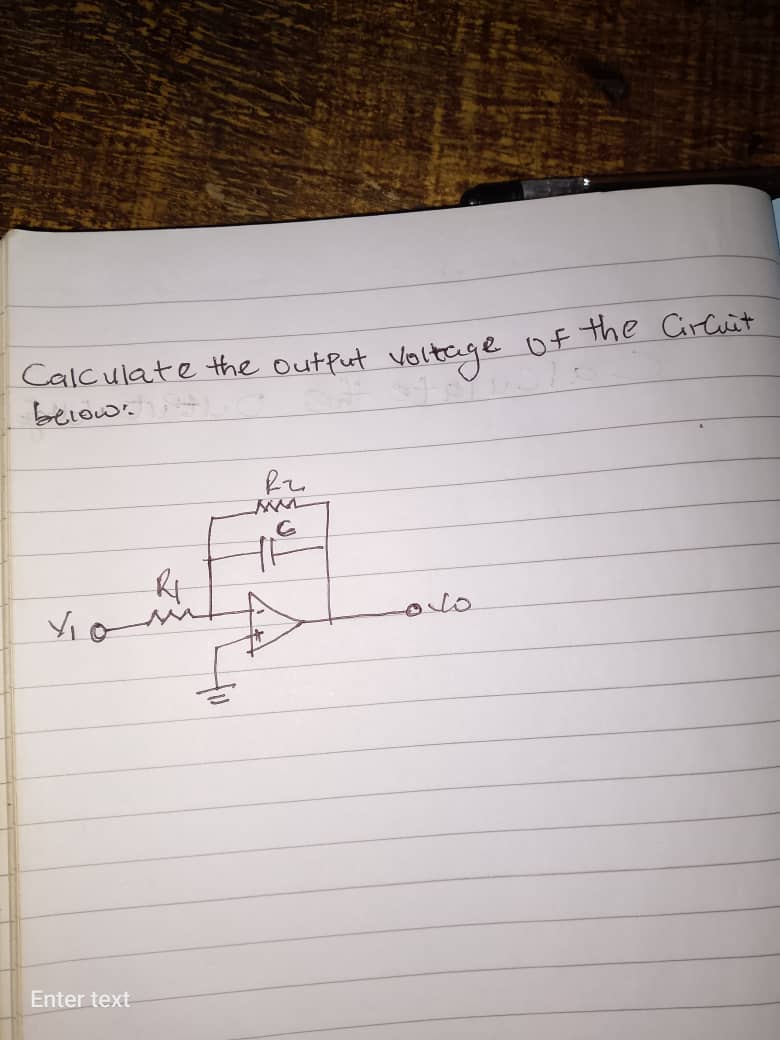 Calculate the output voltage of the Circuit
below:
R2
C
R1
V1
-
+
Vo
Enter text